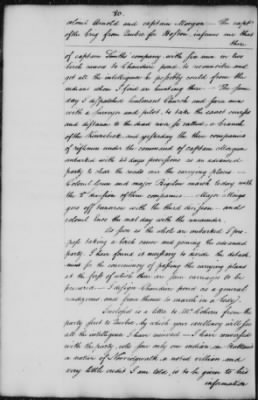 80.
colonel Arnold and captain Morgan — The capt
of the brig from Quebec for Boston, informs me that
there
of captain Smith's company with five men in two
birch canoes to Chaudiere pond to reconnoitre and
get all the intelligence he possibly could from the
indians whom I find are hunting there — The same
day I dispatched lieutenant Church and seven men
with a surveyor and pilot, to take the exact courses
and distance to the dead river so called, a branch
of the Kennebeck, and yesterday the three companies
of riflemen under the command of captain Morgan
embarked with 45 days provisions as an advanced
party to clear the roads over the carrying places —
Colonel Green and major Bigelow march to day with
the 2d division of three companies — Major Meigs
goes off tomorrow with the third division — and
colonel Enos the next day with the remainder.
As soon as the whole are embarked I pro-
pose taking a birch canoe and joining the advanced
party. I have found it necessary to divide the detach
ment for the conveniency of passing the carrying places
at the first of which there are some carriages to be
procured — I design Chaudiere pond as a general
rendezvous and from thence to march in a body.
Inclosed is a letter to Mr.
party sent to Quebec, by which your excellency will see
all the intelligence I have received — I have conversed
with the party, who saw only one indian
a native of Norridgewalk, a noted villain and
very little credit I am told, is to be given to his
information